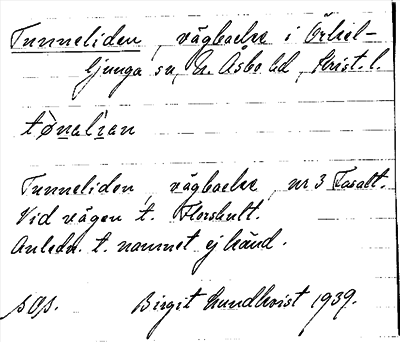 Tunneliden, vägbacke i Örkel-
ljunga sn, N. Åsbo hd, Krist. l.
tònelìan
Tunneliden, vägbacke, nr 3 Fasalt.
Vid vägen t. Florshult.
Anledn. t. namnet ej känd.
sOp. Birgit Lundkvist 1939.